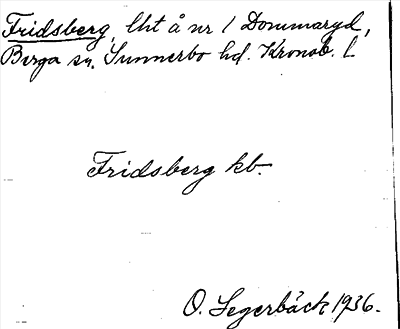 Fridsberg, lht å nr 1 Dommaryd,
Berga sn. Sunnerbo hd. Kronob. l.
Fridsberg kb.
O. Segerbäck 1936.